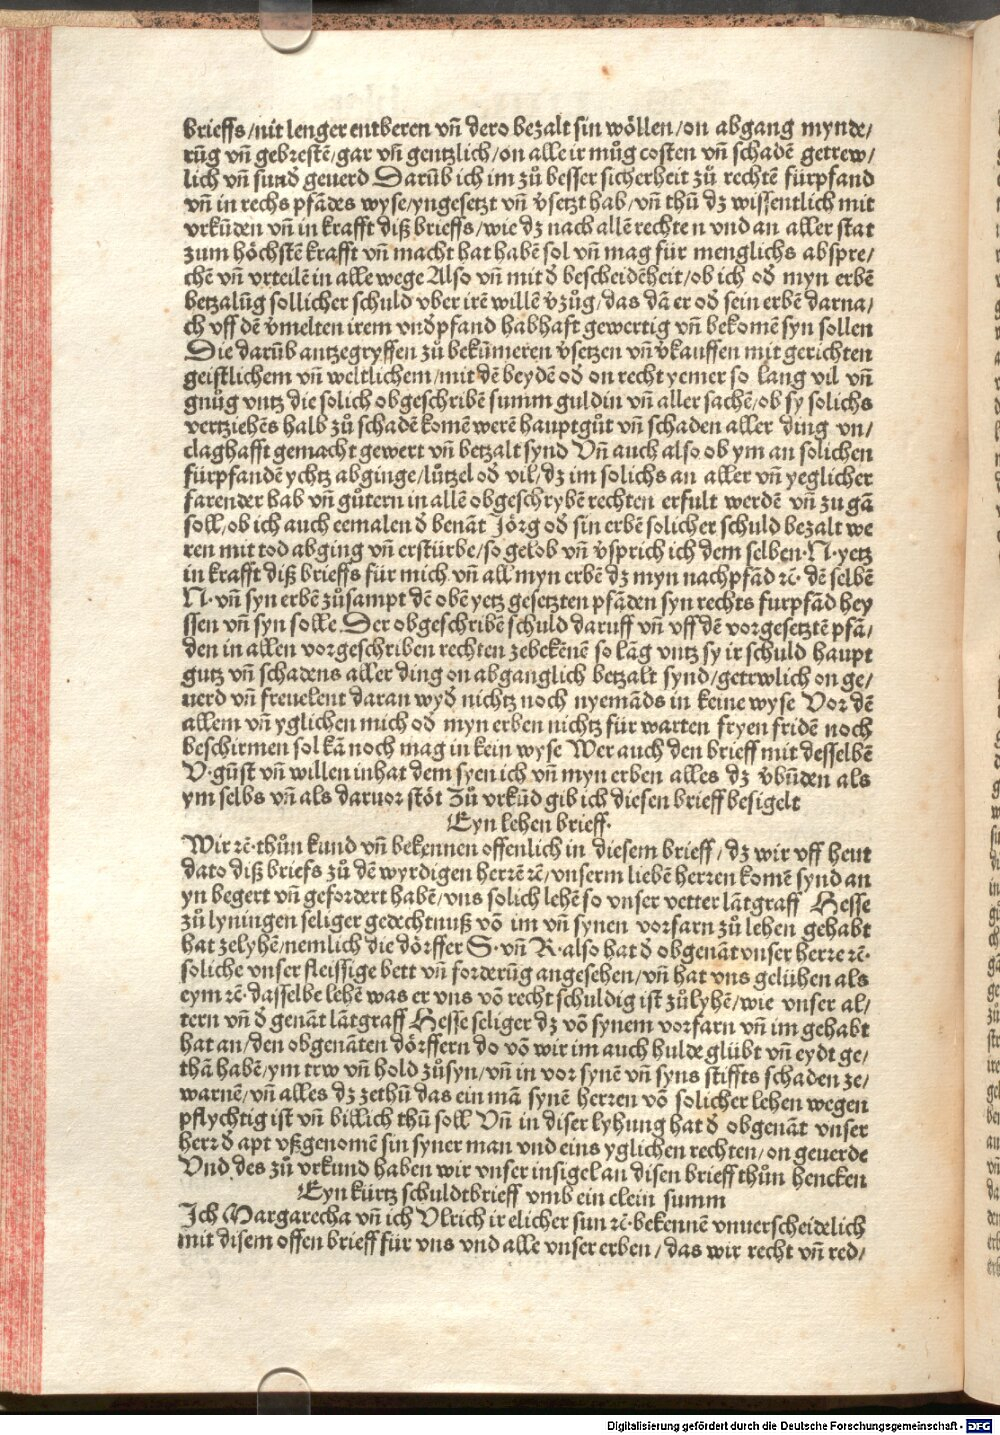 brieffs/nit lenger entberen vn̄ dero bezalt sin wöllen/on abgang mynde/
rūg vn̄ gebrestē/gar vn̄ gentzlich/on alle ir můg costen vn̄ schadē getrew/
lich vn̄ sund̄ geuerd Darūb ich im zů besser sicherheit zů rechtē fürpfand
vn̄ in rechs pfādes wyse/yngesetzt vn̄ v̄setzt hab/vn̄ thů dz wissentlich mit
vrkūden vn̄ in krafft diß brieffs/wie dz nach allē rechten vnd an aller stat
zum höchstē krafft vn̄ macht hat habē sol vn̄ mag für menglichs abspre/
chē vn̄ vrteilē in alle wege Also vn̄ mit d̄ bescheidēheit/ob ich od̄ myn erbē
betzalūg sollicher schuld vber irē willē v̄zůg/das dā er od̄ sein erbē darna/
ch vff dē v̄melten irem vnd̄pfand habhaft gewertig vn̄ bekomē syn sollen
Die darūb antzegryffen zů bekūmeren v̄setzen vn̄ v̄kauffen mit gerichten
geistlichem vn̄ weltlichem/mit dē beydē od̄ on recht yemer so lang vil vn̄
gnůg vntz die solich obgeschribē summ guldin vn̄ aller sachē/ob sy solichs
vertziehēs halb zů schadē komē werē hauptgůt vn̄ schaden aller ding vn/
claghafft gemacht gewert vn̄ betzalt synd Vn̄ auch also ob ym an solichen
fürpfandē ychtz abginge/lützel od̄ vil/dz im solichs an aller vn̄ yeglicher
farender hab vn̄ gůtern in allē obgeschrybē rechten erfult werdē vn̄ zu gā
soll/ob ich auch eemalen d̄ benāt Jörg od̄ sin erbē solicher schuld bezalt we
ren mit tod abging vn̄ erstürbe/so gelob vn̄ v̄sprich ich dem selben·N·yetz
in krafft diß brieffs für mich vn̄ all myn erbē dz myn nachpfād ꝛc̄· dē selbē
N·vn̄ syn erbē zůsampt dē obē yetz gesetzten pfāden syn rechts furpfād hey
ssen vn̄ syn solle Der obgeschribē schuld daruff vn̄ vff dē vorgesetztē pfā/
den in allen vorgeschriben rechten zebekēnē so lāg vntz sy ir schuld haupt
gutz vn̄ schadens aller ding on abganglich betzalt synd/getrwlich on ge/
uerd vn̄ freuelent daran wyd̄ nichtz noch nyemāds in keine wyse Vor dē
allem vn̄ yglichen mich od̄ myn erben nichtz für warten fryen fridē noch
beschirmen sol kā noch mag in kein wyse Wer auch den brieff mit desselbē
V·gūst vn̄ willen inhat dem syen ich vn̄ myn erben alles dz v̄būden als
ym selbs vn̄ als daruor stöt Zů vrkūd gib ich diesen brieff besigelt
Eyn lehen brieff·
Wir ꝛc̄·thůn kund vn̄ bekennen offenlich in diesem brieff/dz wir vff heut
dato diß briefs zů dē wyrdigen herrē ꝛc̄/vnserm liebē herren komē synd an
yn begert vn̄ gefordert habē/vns solich lehē so vnser vetter lātgraff Hesse
zů lyningen seliger gedechtnuß vō im vn̄ synen vorfarn zů lehen gehabt
hat zelyhē/nemlich die dörffer S·vn̄ R·also hat d̄ obgenāt vnser herre ꝛc̄·
soliche vnser fleissige bett vn̄ forderūg angesehen/vn̄ hat vns gelühen als
eym ꝛc̄·dasselbe lehē was er vns vō recht schuldig ist zůlyhē/wie vnser al/
tern vn̄ d̄ genāt lātgraff Hesse seliger dz vō synem vorfarn vn̄ im gehabt
hat an/den obgenāten dörffern do vō wir im auch hulde glübt vn̄ eydt ge/
thā habē/ym trw vn̄ hold zůsyn/vn̄ in vor synē vn̄ syns stiffts schaden ze/
warnē/vn̄ alles dz zethů das ein mā synē herren vō solicher lehen wegen
pflychtig ist vn̄ billich thů soll Vn̄ in diser lyhung hat d̄ obgenāt vnser
herr d̄ apt vßgenomē sin syner man vnd eins yglichen rechten/on geuerde
Vnd des zů vrkund haben wir vnser insigel an disen brieff thůn hencken
Eyn kürtz schuldtbrieff vmb ein clein summ
Ich Margarecha vn̄ ich Vlrich ir elicher sun ꝛc̄·bekennē vnuerscheidelich
mit disem offen brieff für vns vnd alle vnser erben/das wir recht vn̄ red/
Digitalisierung gefördert durch die Deutsche Forschungsgemeinschaft - DFG